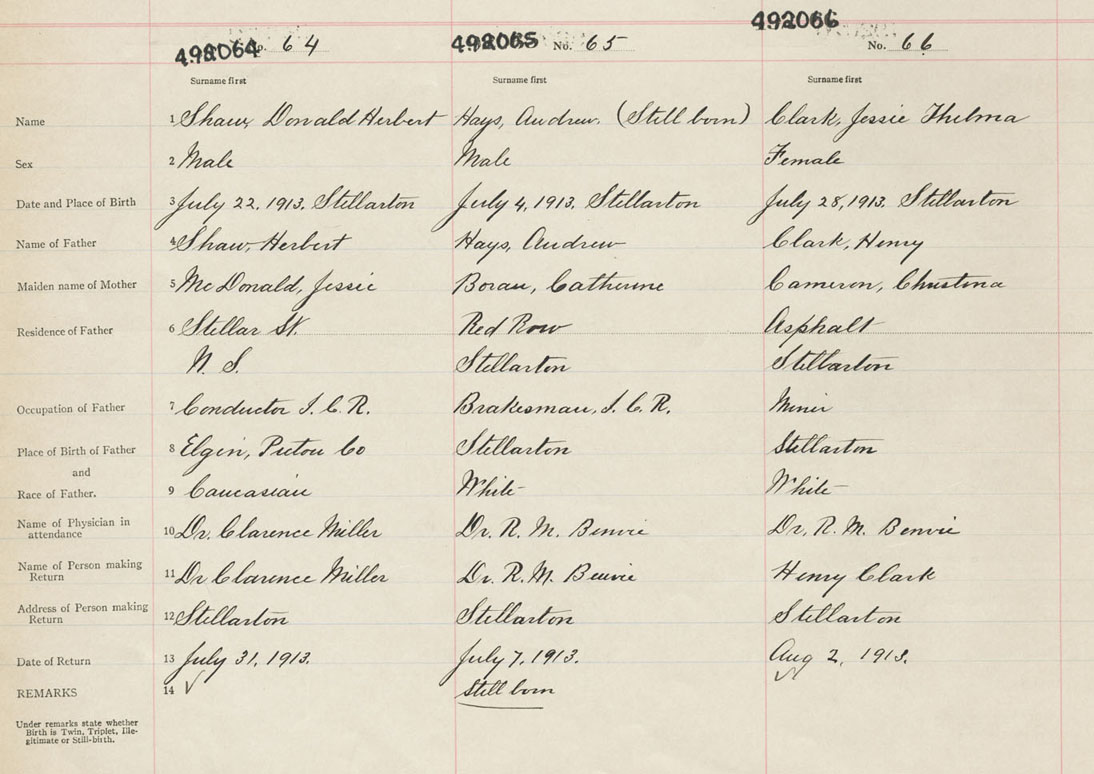 492064 No. 64 492065 No. 65 492066 No. 66
Surname first Surname first Surname first
Name 1 Shaw, Donald Herbert Hays, Andrew. (Still born) Clark, Jessie Thelma
Sex 2 Male Male Female
Date and Place of Birth 3 July 22, 1913. Stellarton July 4, 1913. Stellarton July 28, 1913. Stellarton
Name of Father 4 Shaw, Herbert Hays, Andrew Clark, Henry
Maiden name of Mother 5 McDonald, Jessie Boran, Catherine Cameron, Christina
Residence of Father 6 Stellar St. Red Row Asphalt
N. S. Stellarton Stellarton
Occupation of Father 7 Conductor I. C. R. Brakesman, I. C. R. Miner
Place of Birth of Father 8 Elgin, Pictou Co Stellarton Stellarton
and
Race of Father. 9 Caucasian White White
Name of Physician in
attendance 10 Dr. Clarence Miller Dr. R. M. Benvie Dr. R. M. Benvie
Name of Person making
Return 11 Dr Clarence Miller Dr. R. M. Benvie Henry Clark
Address of Person making
Return 12 Stellarton Stellarton Stellarton
Date of Return 13 July 31, 1913. July 7, 1913. Aug 2, 1913.
REMARKS 14 √ Still born √
Under remarks state whether
Birth is Twin, Triplet, Ille-
gitimate or Still-birth.